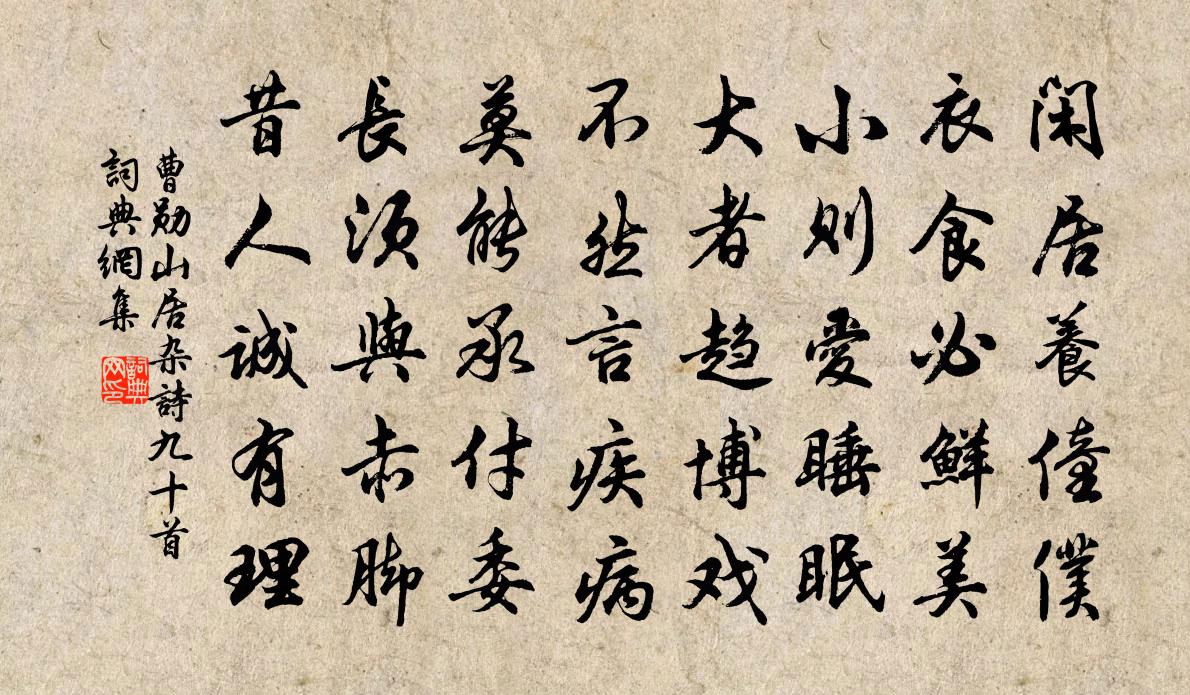 閑居養僮僕
衣食必鮮美
小则愛睡眠
大者趋博戏
不然言疾病
莫能承付委
長須與赤脚
昔人誠有理
曹勛山居杂詩九十首
詞典網集
詞典网印